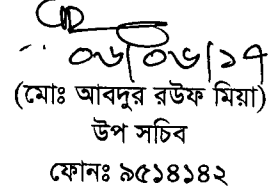 ০৬/০৬/১৭
(মোঃ আবদুর রউফ মিয়া)
উপ সচিব
ফোনঃ ৯৫১৪১৪২